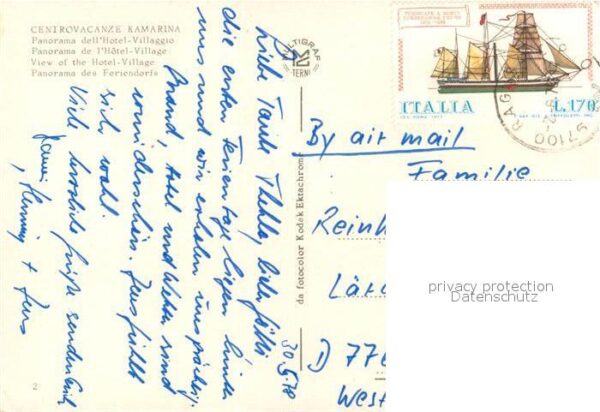 CENTROVACANZE KAMARINA
Panorama dell'Hotel-Villaggio
Panorama de l'Hôtel-Village
View of the Hotel-Village
Panorama des Feriendorfs
MULTIGRAF
TERNI
ITALIA
L.170
97100 RAGUSA
By air mail
Familie
Reinh
D 776
West
da fotocolor Kodak Ektachrome
30.5.78
Liebe Tante Thekla, lieber
die ersten Ferientage liegen hinter
uns und wir erholen uns prächtig.
Strand, Hotel und Wetter sind
wunderschön. Jens fühlt
sich wohl.
Viele herzliche Grüße senden Euch
Henning + Jens
2
privacy protection
Datenschutz